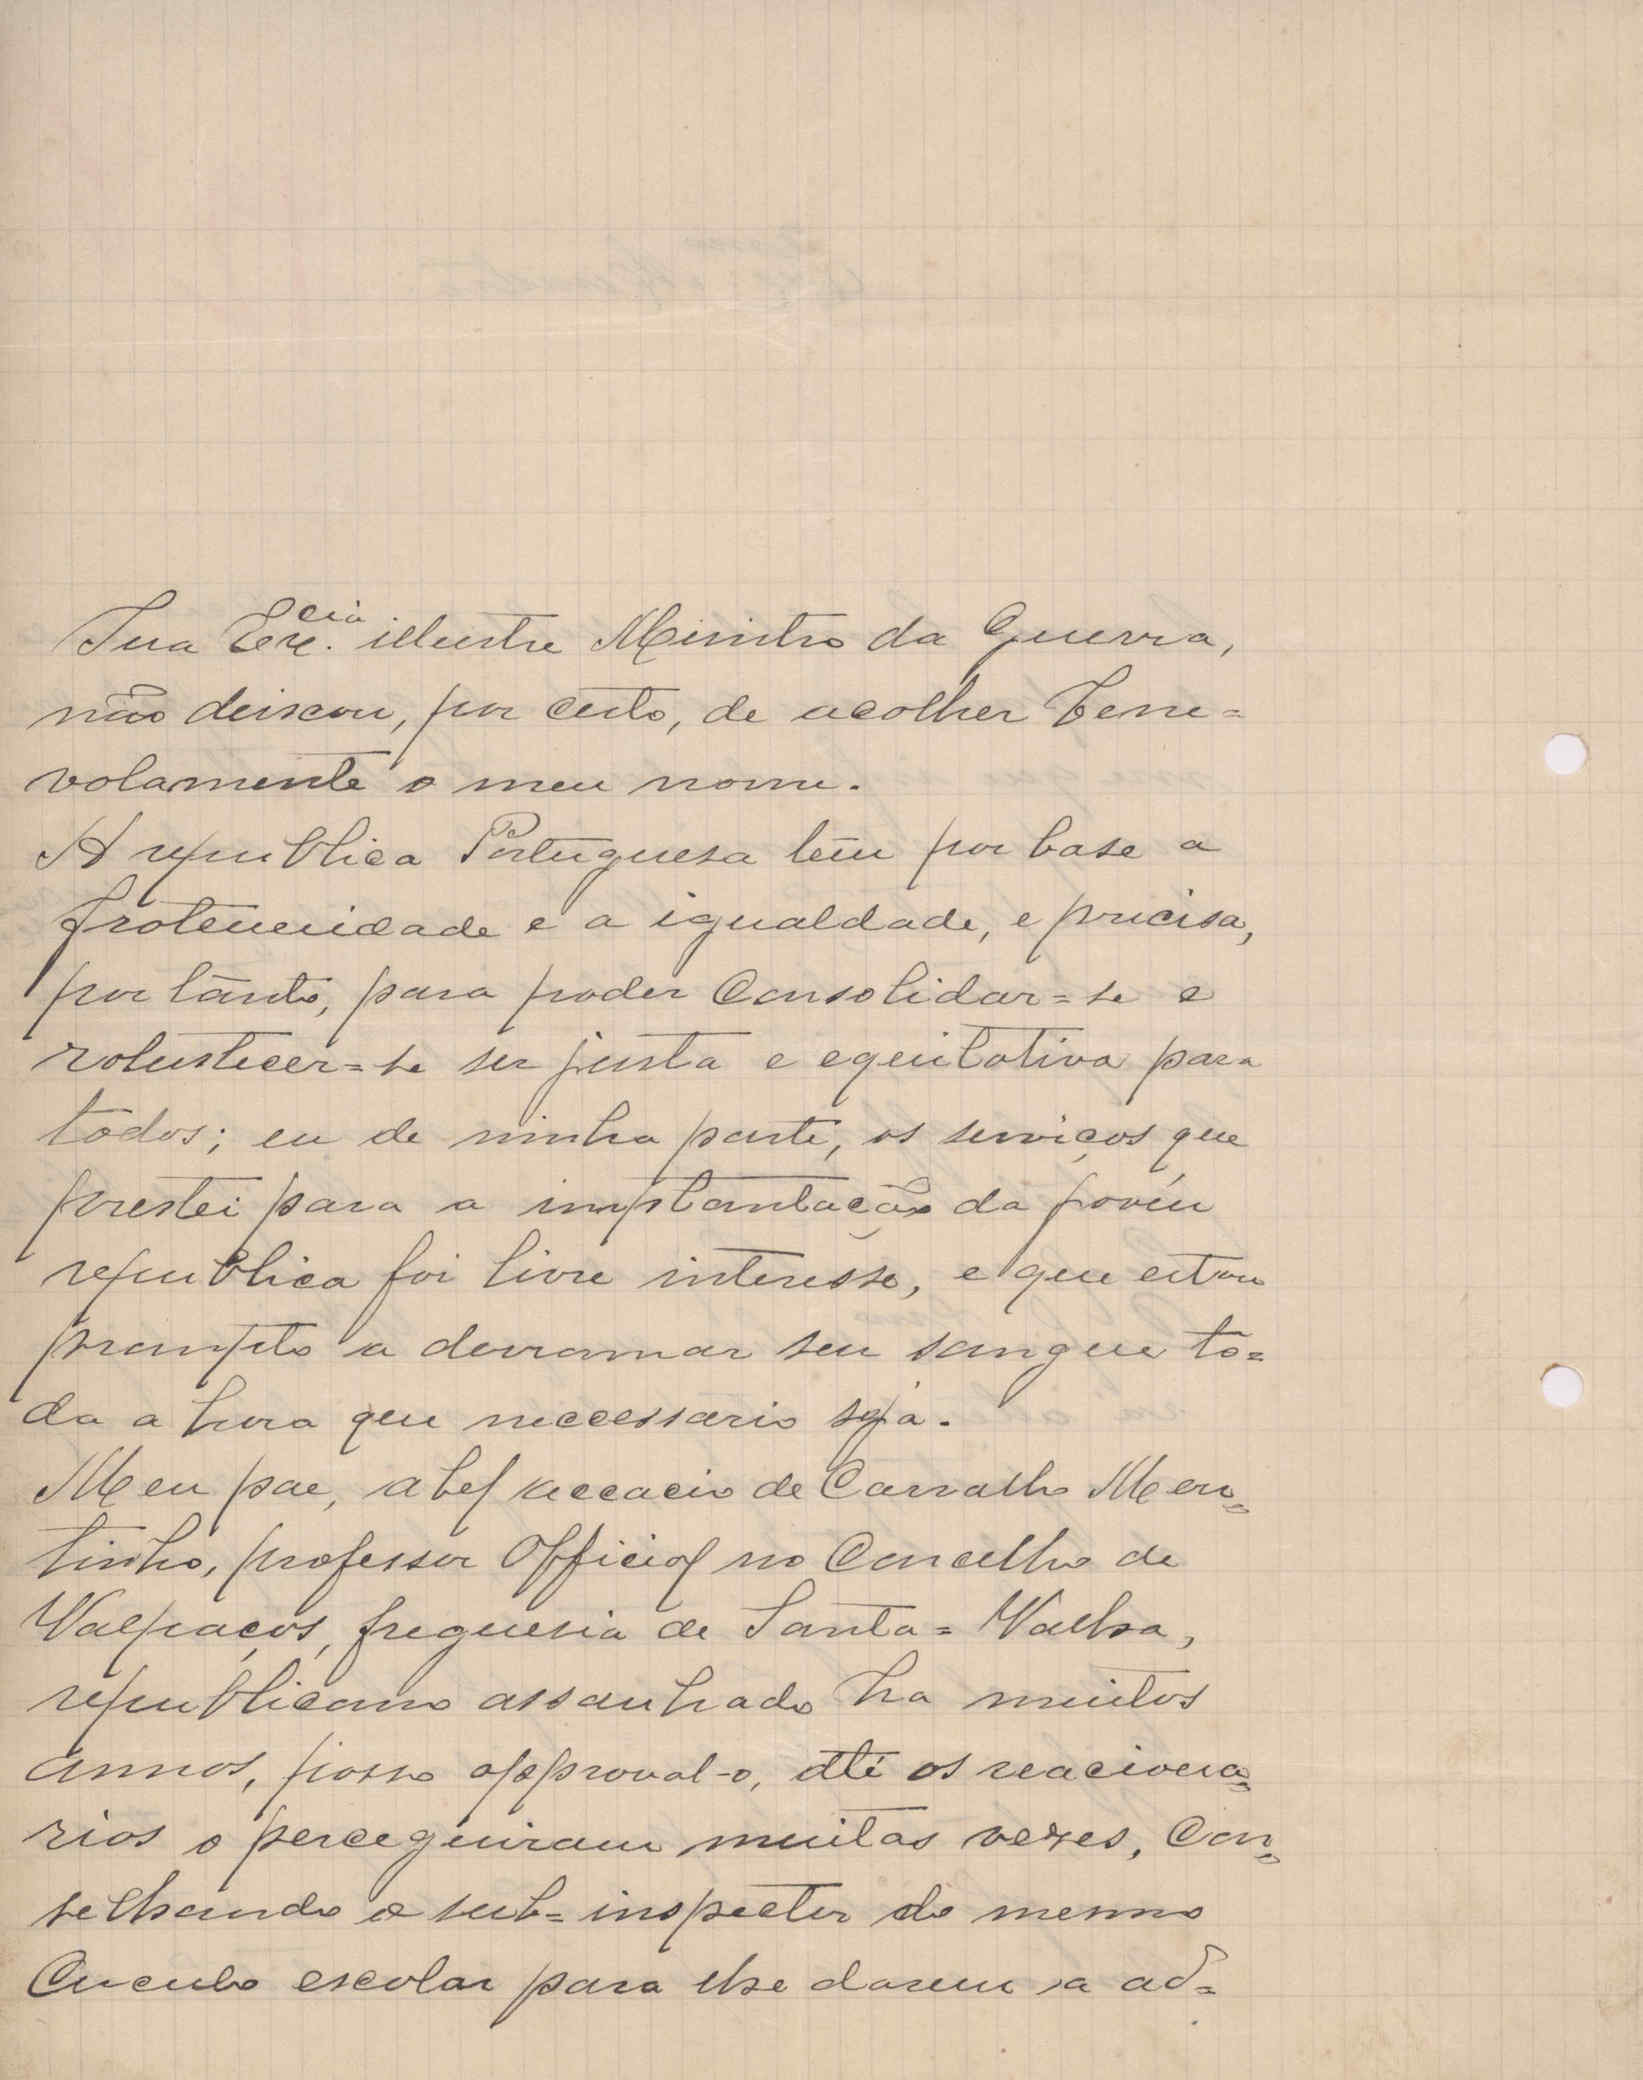 Sua Ex.cia illustre Ministro da Guerra,
não deixou, por certo, de acolher bene=
volamente o meu nome.
A republica Portuguesa tem por base a
froternidade e a igualdade, e precisa,
por tanto, para poder Consolidar=se e
robustecer=se ser justa e equitativa para
todos; eu de minha parte, os serviços que
prestei para a implantação da jovén
republica foi livre interesse, e que estou
prompto a derramar seu sangue to=
da a hora que neccessario seja.
Meu pae, abel accacio de Carvalho Mou=
tinho, professor Official no Concelho de
Valpaços, freguesia de Santa=Valha,
republicano assanhado ha muitos
annos, posso approval-o, até os reaciona=
rios o perceguiram muitas vezes, Con=
selhando o sub=inspector do mesmo
Circulo escolar para lhe darem a ad=